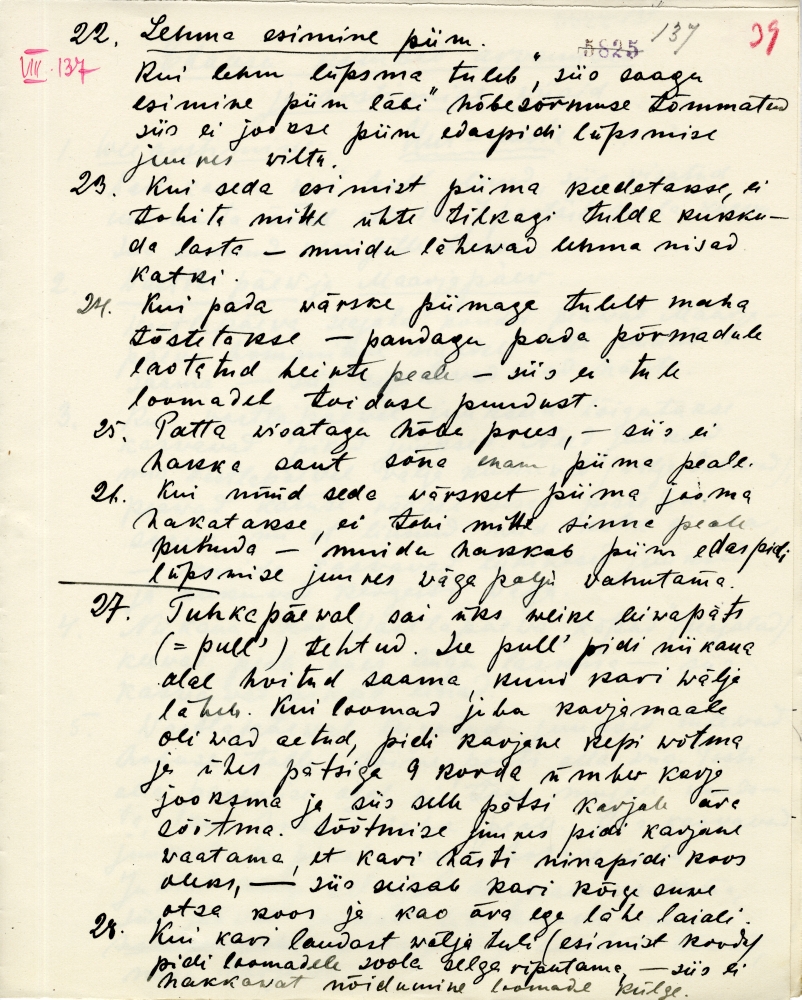 22. Lehma esimine piim.
5825 137 39
VIII.137
Kui lehm lüpsma tuleb, siis saagu
esimine piim läbi hõbesõrmuse tõmmatud
siis ei jookse piim edaspidi lüpsmise
juures wiltu.
23. Kui seda esimist piima keedetakse, ei
tohita mitte ühte tilkagi tulde kukku-
da lasta – muidu lähewad lehma nisad
katki.
24. Kui pada wärske piimaga tulelt maha
tõstetakse – pandagu pada põrmadule
laotatud heinte peale – siis ei tule
loomadel toiduse puudust.
25. Patta wisatagu hõbe prees, – siis ei
hakka saut sõna enam piima peale.
26. Kui nüüd seda wärsket piima jooma
hakatakse, ei tohi mitte sinna peale
puhuda – muidu hakkab piim edaspidi
lüpsmise juures wäga palju vahutama.
27. Tuhkapäewal sai üks weike leiwapäts
(= pull') tehtud. See pull' pidi niikaua
alal hoitud saama, kuni kari wälja
läheb. Kui loomad juba karjamaale
oliwad aetud, pidi karjane kepi wõtma
ja ühes pätsiga 9 korda ümber karja
jooksma ja siis selle pätsi karjale ära
söötma. Söötmise juures pidi karjane
waatama, et kari hästi ninapidi koos
oleks, – siis seisab kari kõige suwe
otsa koos ja kao ära ega lähe laiali.
28. Kui kari laudast wälja tuli (esimist korda)
pidi loomadele soola selga riputama, – siis ei
hakkawat nõidumine loomade külge.